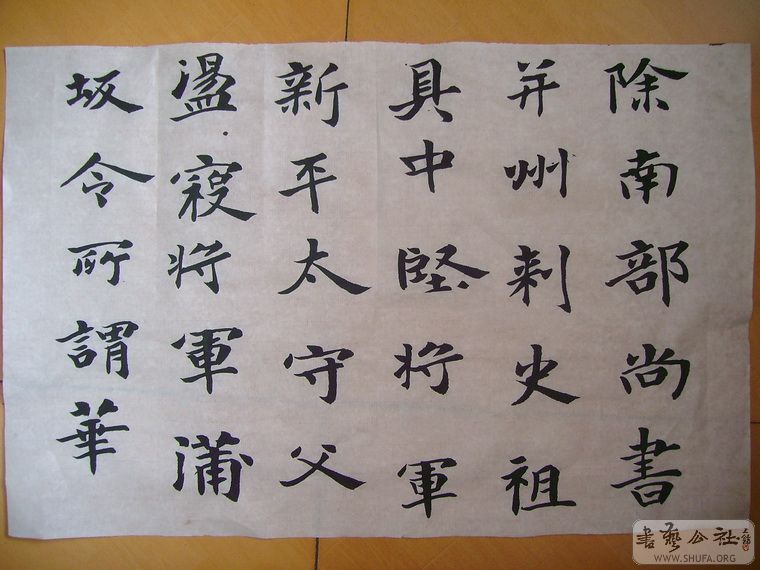 除南部尚書
并州刺史祖
具中堅将軍
新平太守父
盪寇将軍蒲
坂令所謂華
書藝公社
WWW.SHUFA.ORG